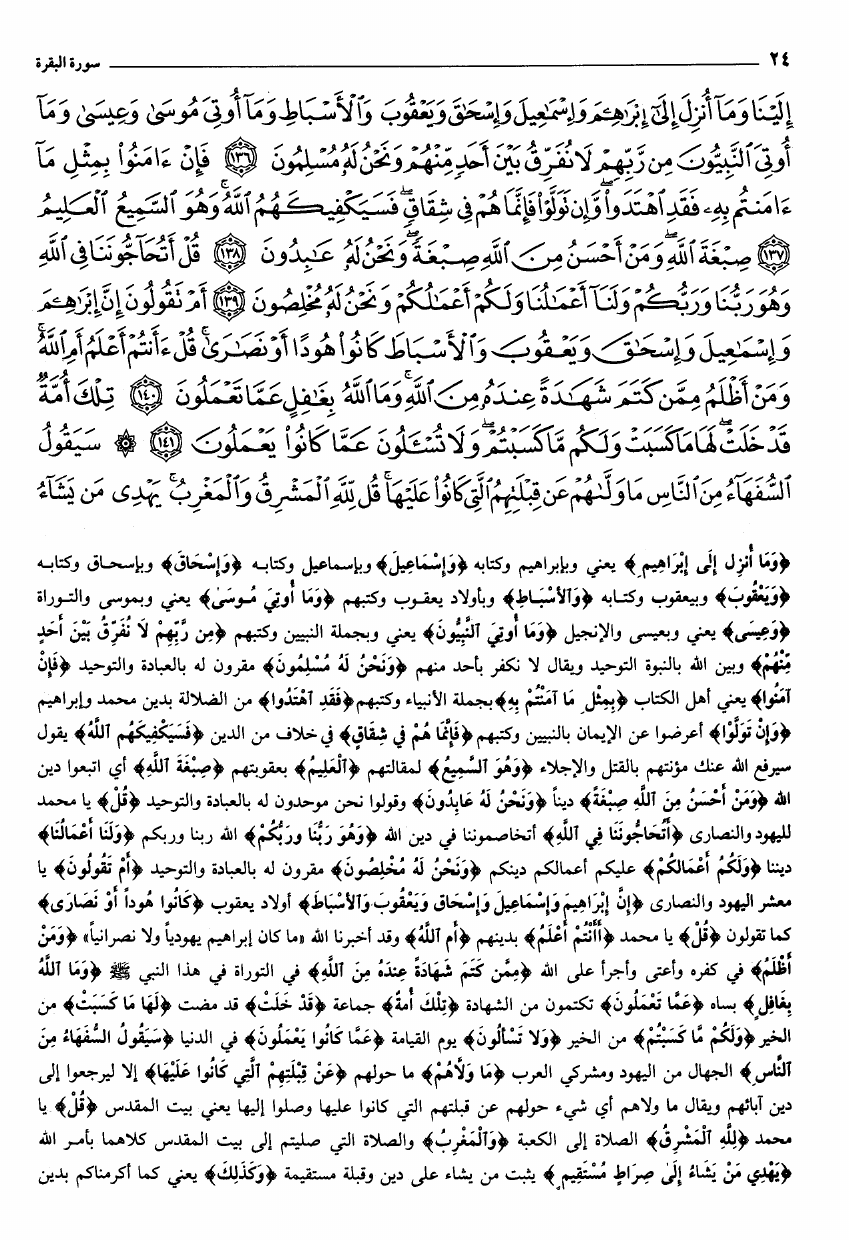 ٢٤ سورة البقرة
إِلَيْنَا وَمَآ أُنزِلَ إِلَىٰٓ إِبْرَٰهِـۧمَ وَإِسْمَٰعِيلَ وَإِسْحَٰقَ وَيَعْقُوبَ وَٱلْأَسْبَاطِ وَمَآ أُوتِىَ مُوسَىٰ وَعِيسَىٰ وَمَآ
أُوتِىَ ٱلنَّبِيُّونَ مِن رَّبِّهِمْ لَا نُفَرِّقُ بَيْنَ أَحَدٍ مِّنْهُمْ وَنَحْنُ لَهُۥ مُسْلِمُونَ ١٣٦ فَإِنْ ءَامَنُوا۟ بِمِثْلِ مَآ
ءَامَنتُم بِهِۦ فَقَدِ ٱهْتَدَوا۟ ۖ وَّإِن تَوَلَّوْا۟ فَإِنَّمَا هُمْ فِى شِقَاقٍ ۖ فَسَيَكْفِيكَهُمُ ٱللَّهُ ۚ وَهُوَ ٱلسَّمِيعُ ٱلْعَلِيمُ
١٣٧ صِبْغَةَ ٱللَّهِ ۖ وَمَنْ أَحْسَنُ مِنَ ٱللَّهِ صِبْغَةً ۖ وَنَحْنُ لَهُۥ عَٰبِدُونَ ١٣٨ قُلْ أَتُحَآجُّونَنَا فِى ٱللَّهِ
وَهُوَ رَبُّنَا وَرَبُّكُمْ وَلَنَآ أَعْمَٰلُنَا وَلَكُمْ أَعْمَٰلُكُمْ وَنَحْنُ لَهُۥ مُخْلِصُونَ ١٣٩ أَمْ نَقُولُونَ إِنَّ إِبْرَٰهِـۧمَ
وَإِسْمَٰعِيلَ وَإِسْحَٰقَ وَيَعْقُوبَ وَٱلْأَسْبَاطَ كَانُوا۟ هُودًا أَوْ نَصَٰرَىٰ ۗ قُلْ ءَأَنتُمْ أَعْلَمُ أَمِ ٱللَّهُ ۗ
وَمَنْ أَظْلَمُ مِمَّن كَتَمَ شَهَٰدَةً عِندَهُۥ مِنَ ٱللَّهِ ۗ وَمَا ٱللَّهُ بِغَٰفِلٍ عَمَّا تَعْمَلُونَ ١٤٠ تِلْكَ أُمَّةٌ
قَدْ خَلَتْ ۖ لَهَا مَا كَسَبَتْ وَلَكُم مَّا كَسَبْتُمْ ۖ وَلَا تُسْـَٔلُونَ عَمَّا كَانُوا۟ يَعْمَلُونَ ١٤١ ۞ سَيَقُولُ
ٱلسُّفَهَآءُ مِنَ ٱلنَّاسِ مَا وَلَّىٰهُمْ عَن قِبْلَتِهِمُ ٱلَّتِى كَانُوا۟ عَلَيْهَا ۚ قُل لِّلَّهِ ٱلْمَشْرِقُ وَٱلْمَغْرِبُ ۚ يَهْدِى مَن يَشَآءُ
﴿وَمَا أُنزِلَ إِلَى إِبْرَاهِيم﴾ يعني وبإبراهيم وكتابه ﴿وَإِسْمَاعِيلَ﴾ وبإسماعيل وكتابه ﴿وَإِسْحَاقَ﴾ وبإسحاق وكتابه
﴿وَيَعْقُوبَ﴾ وبيعقوب وكتابه ﴿وَٱلأَسْبَاطِ﴾ وبأولاد يعقوب وكتبهم ﴿وَمَا أُوتِيَ مُوسَىٰ﴾ يعني وبموسى والتوراة
﴿وَعِيسَى﴾ يعني وبعيسى والإنجيل ﴿وَمَا أُوتِيَ ٱلنَّبِيُّونَ﴾ يعني وبجملة النبيين وكتبهم ﴿مِن رَّبِّهِمْ لاَ نُفَرِّقُ بَيْنَ أَحَدٍ
مِّنْهُمْ﴾ وبين الله بالنبوة التوحيد ويقال لا نكفر بأحد منهم ﴿وَنَحْنُ لَهُ مُسْلِمُونَ﴾ مقرون له بالعبادة والتوحيد ﴿فَإِنْ
آمَنُوا﴾ يعني أهل الكتاب ﴿بِمِثْلِ مَا آمَنْتُمْ بِهِ﴾ بجملة الأنبياء وكتبهم ﴿فَقَدِ ٱهْتَدُوا﴾ من الضلالة بدين محمد وإبراهيم
﴿وَإِنْ تَوَلَّوْا﴾ أعرضوا عن الإيمان بالنبيين وكتبهم ﴿فَإِنَّمَا هُمْ فِي شِقَاقٍ﴾ في خلاف من الدين ﴿فَسَيَكْفِيكَهُم ٱللَّهُ﴾ يقول
سيرفع الله عنك مؤنتهم بالقتل والإجلاء ﴿وَهُوَ ٱلسَّمِيعُ﴾ لمقالتهم ﴿ٱلْعَلِيمُ﴾ بعقوبتهم ﴿صِبْغَةَ ٱللَّهِ﴾ أي اتبعوا دين
الله ﴿وَمَنْ أَحْسَنُ مِنَ ٱللَّهِ صِبْغَةً﴾ ديناً ﴿وَنَحْنُ لَهُ عَابِدُونَ﴾ وقولوا نحن موحدون له بالعبادة والتوحيد ﴿قُلْ﴾ يا محمد
لليهود والنصارى ﴿أَتُحَاجُّونَنَا فِي ٱللَّهِ﴾ أتخاصموننا في دين الله ﴿وَهُوَ رَبُّنَا وَرَبُّكُمْ﴾ الله ربنا وربكم ﴿وَلَنَا أَعْمَالُنَا﴾
ديننا ﴿وَلَكُمْ أَعْمَالكُمْ﴾ عليكم أعمالكم دينكم ﴿وَنَحْنُ لَهُ مُخْلِصُونَ﴾ مقرون له بالعبادة والتوحيد ﴿أَمْ تَقُولُونَ﴾ يا
معشر اليهود والنصارى ﴿إِنَّ إِبْرَاهِيمَ وَإِسْمَاعِيلَ وَإِسْحَاق وَيَعْقُوبَ وَٱلأَسْبَاطَ﴾ أولاد يعقوب ﴿كَانُوا هُوداً أَوْ نَصَارَى﴾
كما تقولون ﴿قُلْ﴾ يا محمد ﴿أَأَنْتُمْ أَعْلَمُ﴾ بدينهم ﴿أَم ٱللَّهُ﴾ وقد أخبرنا الله «ما كان إبراهيم يهودياً ولا نصرانياً» ﴿وَمَنْ
أَظْلَمُ﴾ في كفره وأعتى وأجرأ على الله ﴿مِمَّن كَتَمَ شَهَادَةً عِنْدَهُ مِنَ ٱللَّهِ﴾ في التوراة في هذا النبي ﷺ ﴿وَمَا ٱللَّهُ
بِغَافِلٍ﴾ بساه ﴿عَمَّا تَعْمَلُونَ﴾ تكتمون من الشهادة ﴿تِلْكَ أُمةٌ﴾ جماعة ﴿قَدْ خَلَتْ﴾ قد مضت ﴿لَهَا مَا كَسَبَتْ﴾ من
الخير ﴿وَلَكُمْ مَّا كَسَبْتُمْ﴾ من الخير ﴿وَلا تَسْأَلُونَ﴾ يوم القيامة ﴿عَمَّا كَانُوا يَعْمَلُونَ﴾ في الدنيا ﴿سَيَقُولُ السُّفَهَاءُ مِنَ
ٱلنَّاسِ﴾ الجهال من اليهود ومشركي العرب ﴿مَا وَلاَهُمْ﴾ ما حولهم ﴿عَنْ قِبْلَتِهِمْ ٱلَّتِي كَانُوا عَلَيْهَا﴾ إلا ليرجعوا إلى
دين آبائهم ويقال ما ولاهم أي شيء حولهم عن قبلتهم التي كانوا عليها وصلوا إليها يعني بيت المقدس ﴿قُلْ﴾ يا
محمد ﴿لِلَّهِ ٱلْمَشْرِقُ﴾ الصلاة إلى الكعبة ﴿وَٱلْمَغْرِبُ﴾ والصلاة التي صليتم إلى بيت المقدس كلاهما بأمر الله
﴿يَهْدِي مَنْ يَشَاءُ إِلَىٰ صِرَاطٍ مُسْتَقِيم﴾ يثبت من يشاء على دين وقبلة مستقيمة ﴿وَكَذَلِكَ﴾ يعني كما أكرمناكم بدين